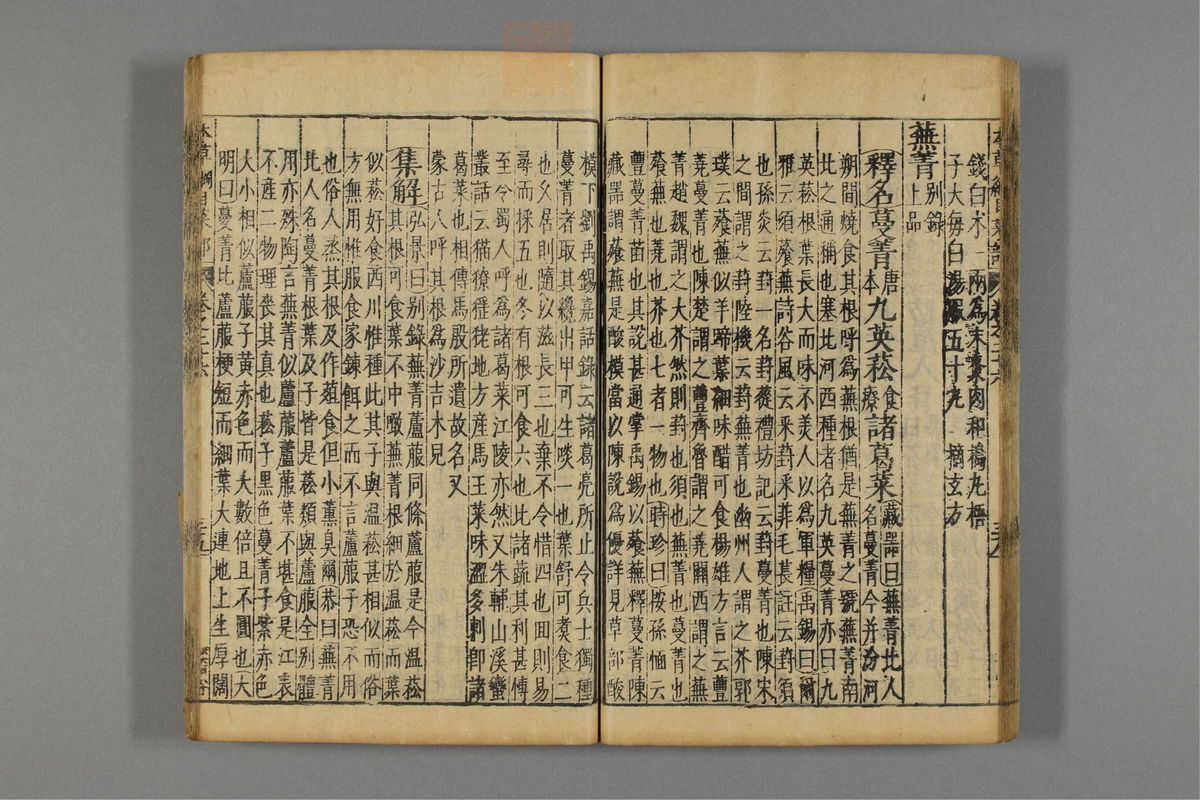 錢白术一兩爲末棗肉和搗丸梧
子大每白湯服五十丸 摘玄方
蕪菁別錄上品
釋名蔓菁唐本九英菘食療諸葛菜藏器曰蕪菁北人
名蔓菁今并汾河
朔間燒食其根呼爲蕪根猶是蕪菁之號蕪菁南
北之通稱也塞北河西種者名九英蔓菁亦曰九
英菘根葉長大而味不美人以爲軍糧禹錫曰爾
雅云須薞蕪詩谷風云采葑采菲毛萇註云葑須
也孫炎云葑一名葑蓯禮坊記云葑蔓菁也陳宋
之間謂之葑陸機云葑蕪菁也幽州人謂之芥郭
璞云薞蕪似羊蹄葉細味醋可食楊雄方言云豐
蕘蔓菁也陳楚謂之豐齊魯謂之蕘關西謂之蕪
菁趙魏謂之大芥然則葑也須也蕪菁也蔓菁也
薞蕪也蕘也芥也七者一物也時珍曰按孫愐云
豐蔓菁苗也其說甚通掌禹錫以薞蕪釋蔓菁陳
藏器謂薞蕪是酸模當以陳說爲優詳見草部酸
模下劉禹錫嘉話錄云諸葛亮所止令兵士獨種
蔓菁者取其纔出甲可生啖一也葉舒可煮食二
也久居則隨以滋長三也棄不令惜四也回則易
尋而採五也冬有根可食六也比諸蔬其利甚博
至今蜀人呼爲諸葛菜江陵亦然又朱輔山溪蠻
叢話云猫獠猺狫地方產馬王菜味澀多刺即諸
葛菜也相傳馬殷所遺故名又
蒙古人呼其根爲沙吉木兒
集解弘景曰別錄蕪菁蘆菔同條蘆菔是今温菘
其根可食葉不中噉蕪菁根細於温菘而葉
似菘好食西川惟種此其子與温菘甚相似而俗
方無用惟服食家鍊餌之而不言蘆菔子恐不用
也俗人蒸其根及作葅食但小薰臭爾恭曰蕪菁
北人名蔓菁根葉及子皆是菘類與蘆菔全別體
用亦殊陶言蕪菁似蘆菔蘆菔葉不堪食是江表
不產二物理喪其真也菘子黑色蔓菁子紫赤色
大小相似蘆菔子黃赤色而大數倍且不圓也大
明曰蔓菁比蘆菔梗短而細葉大連地上生厚闊